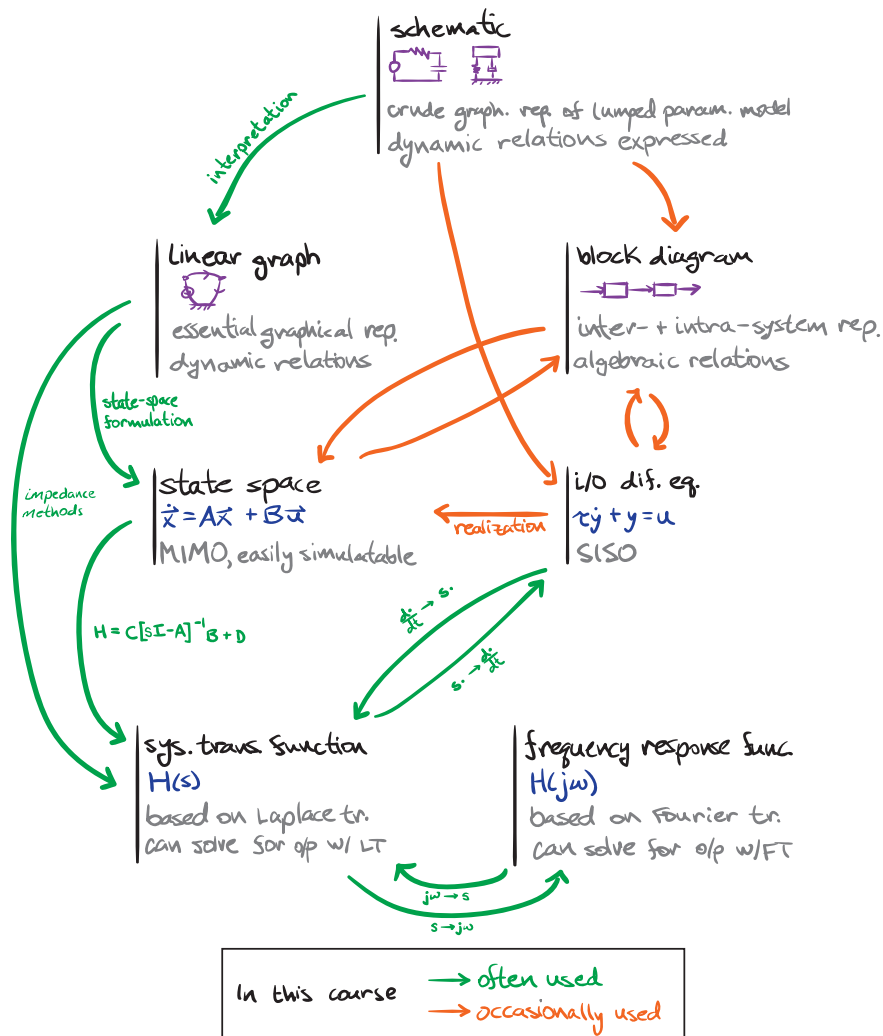 schematic
crude graph. rep. of lumped param. model
dynamic relations expressed
interpretation
linear graph
essential graphical rep.
dynamic relations
block diagram
inter- + intra-system rep.
algebraic relations
state-space
formulation
impedance
methods
state space
ẋ⃗ = Ax⃗ + Bu⃗
MIMO, easily simulatable
realization
i/o dif. eq.
τẏ + y = u
SISO
H = C[sI-A]⁻¹B + D
d·/dt → s·
s· → d·/dt
sys. trans. function
H(s)
based on Laplace tr.
can solve for o/p w/ LT
frequency response func.
H(jω)
based on Fourier tr.
can solve for o/p w/FT
jω → s
s → jω
In this course
often used
occasionally used